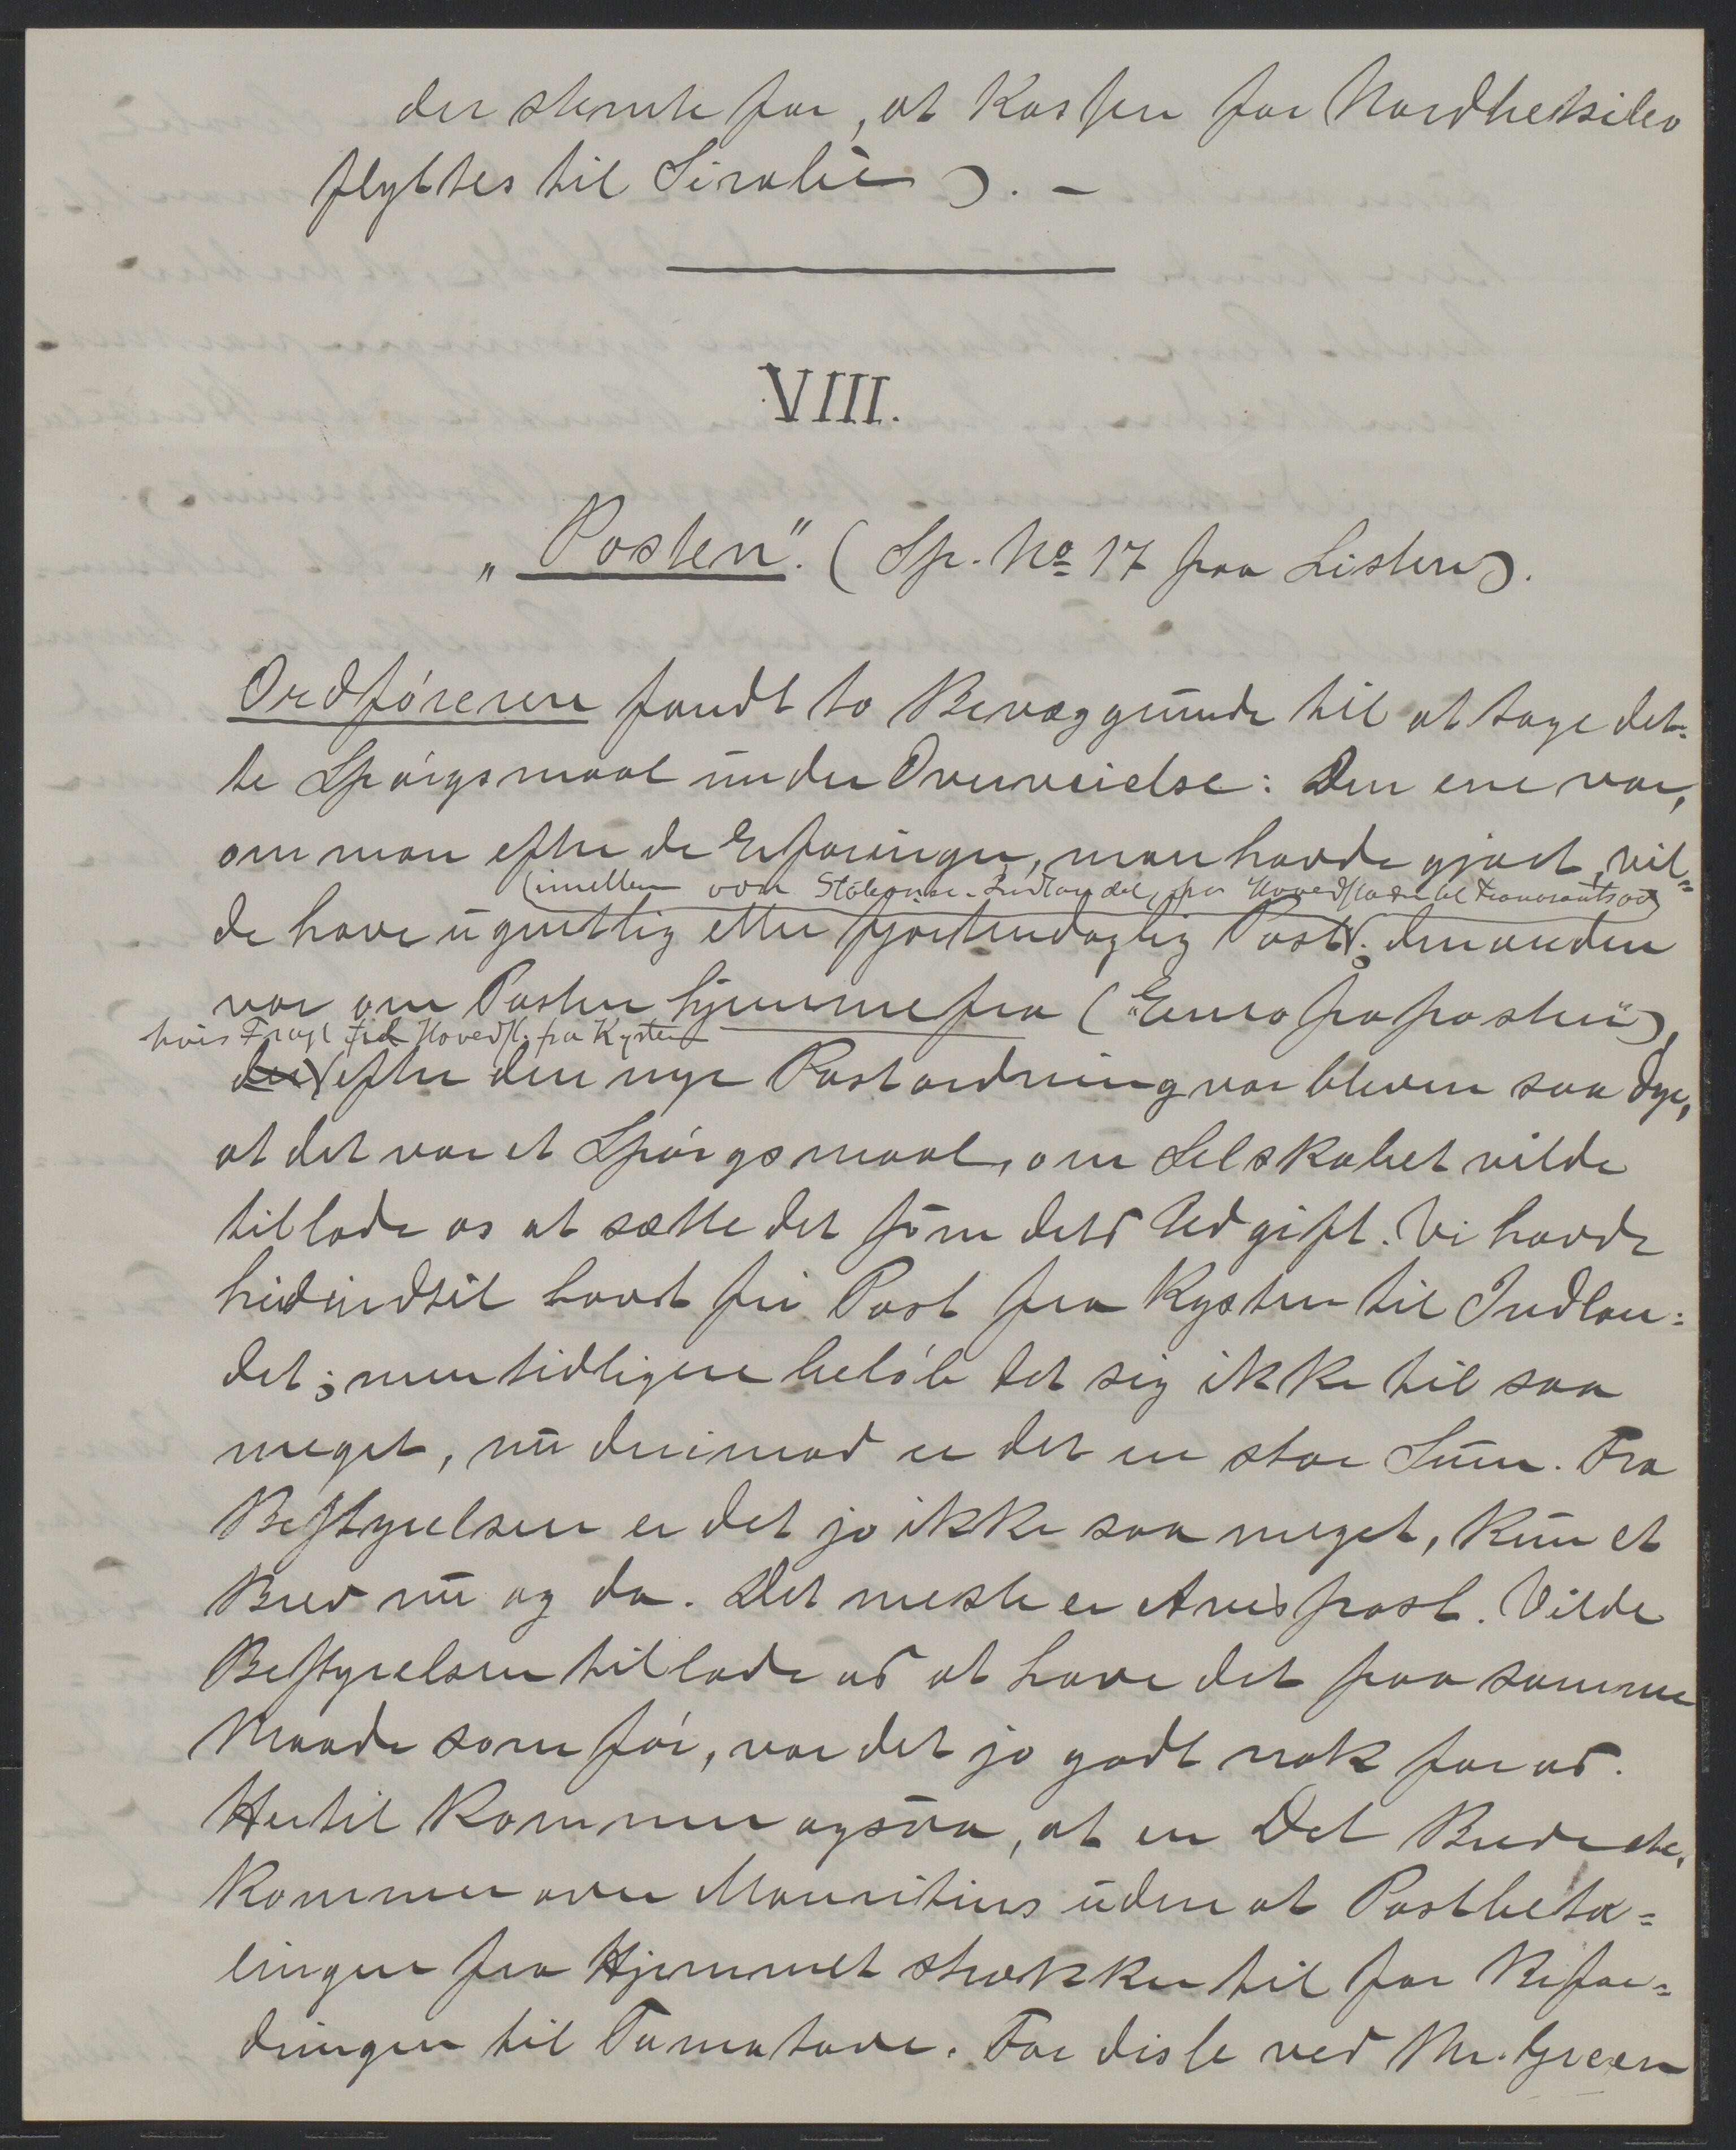 der stemte for, at Kassen for Nordbetsileo
flyttes til Sirabè). –
VIII.
„Posten". (Sp. No 17 paa Listen).
Ordføreren fandt to Bevæggrunde til at tage det-
te Spørgsmaal under Overveielse: Den ene var,
om man efter de Erfaringer, man havde gjort, vil-
(imellem vore Stationer i Indlandet, fra Hovedstaden til Fianarantsoa)
de have ugentlig eller fjortendaglig Post; den anden
var om Posten hjemmefra („Europaposten"),
hvis Fragt til Hovedst. fra Kysten
der efter den nye Postordning var bleven saa dyr,
at det var et Spørgsmaal, om Selskabet vilde
tillade os at sætte det som dets Udgift. Vi havde
hidindtil havt fri Post fra Kysten til Indlan-
det; men tidligere beløb det sig ikke til saa
meget, nu derimod er det en stor Sum. Fra
Bestyrelsen er det jo ikke saa meget, kun et
Brev nu og da. Det meste er Avispost. Vilde
Bestyrelsen tillade os at have det paa samme
Maade som før, var det jo godt nok for os.
Hertil kommer ogsaa, at en Del Breve etc.
kommer over Mauritius uden at Postbeta-
lingen fra Hjemmet strækker til for Befor-
dringen til Tamatave. For disse ved Mr. Green